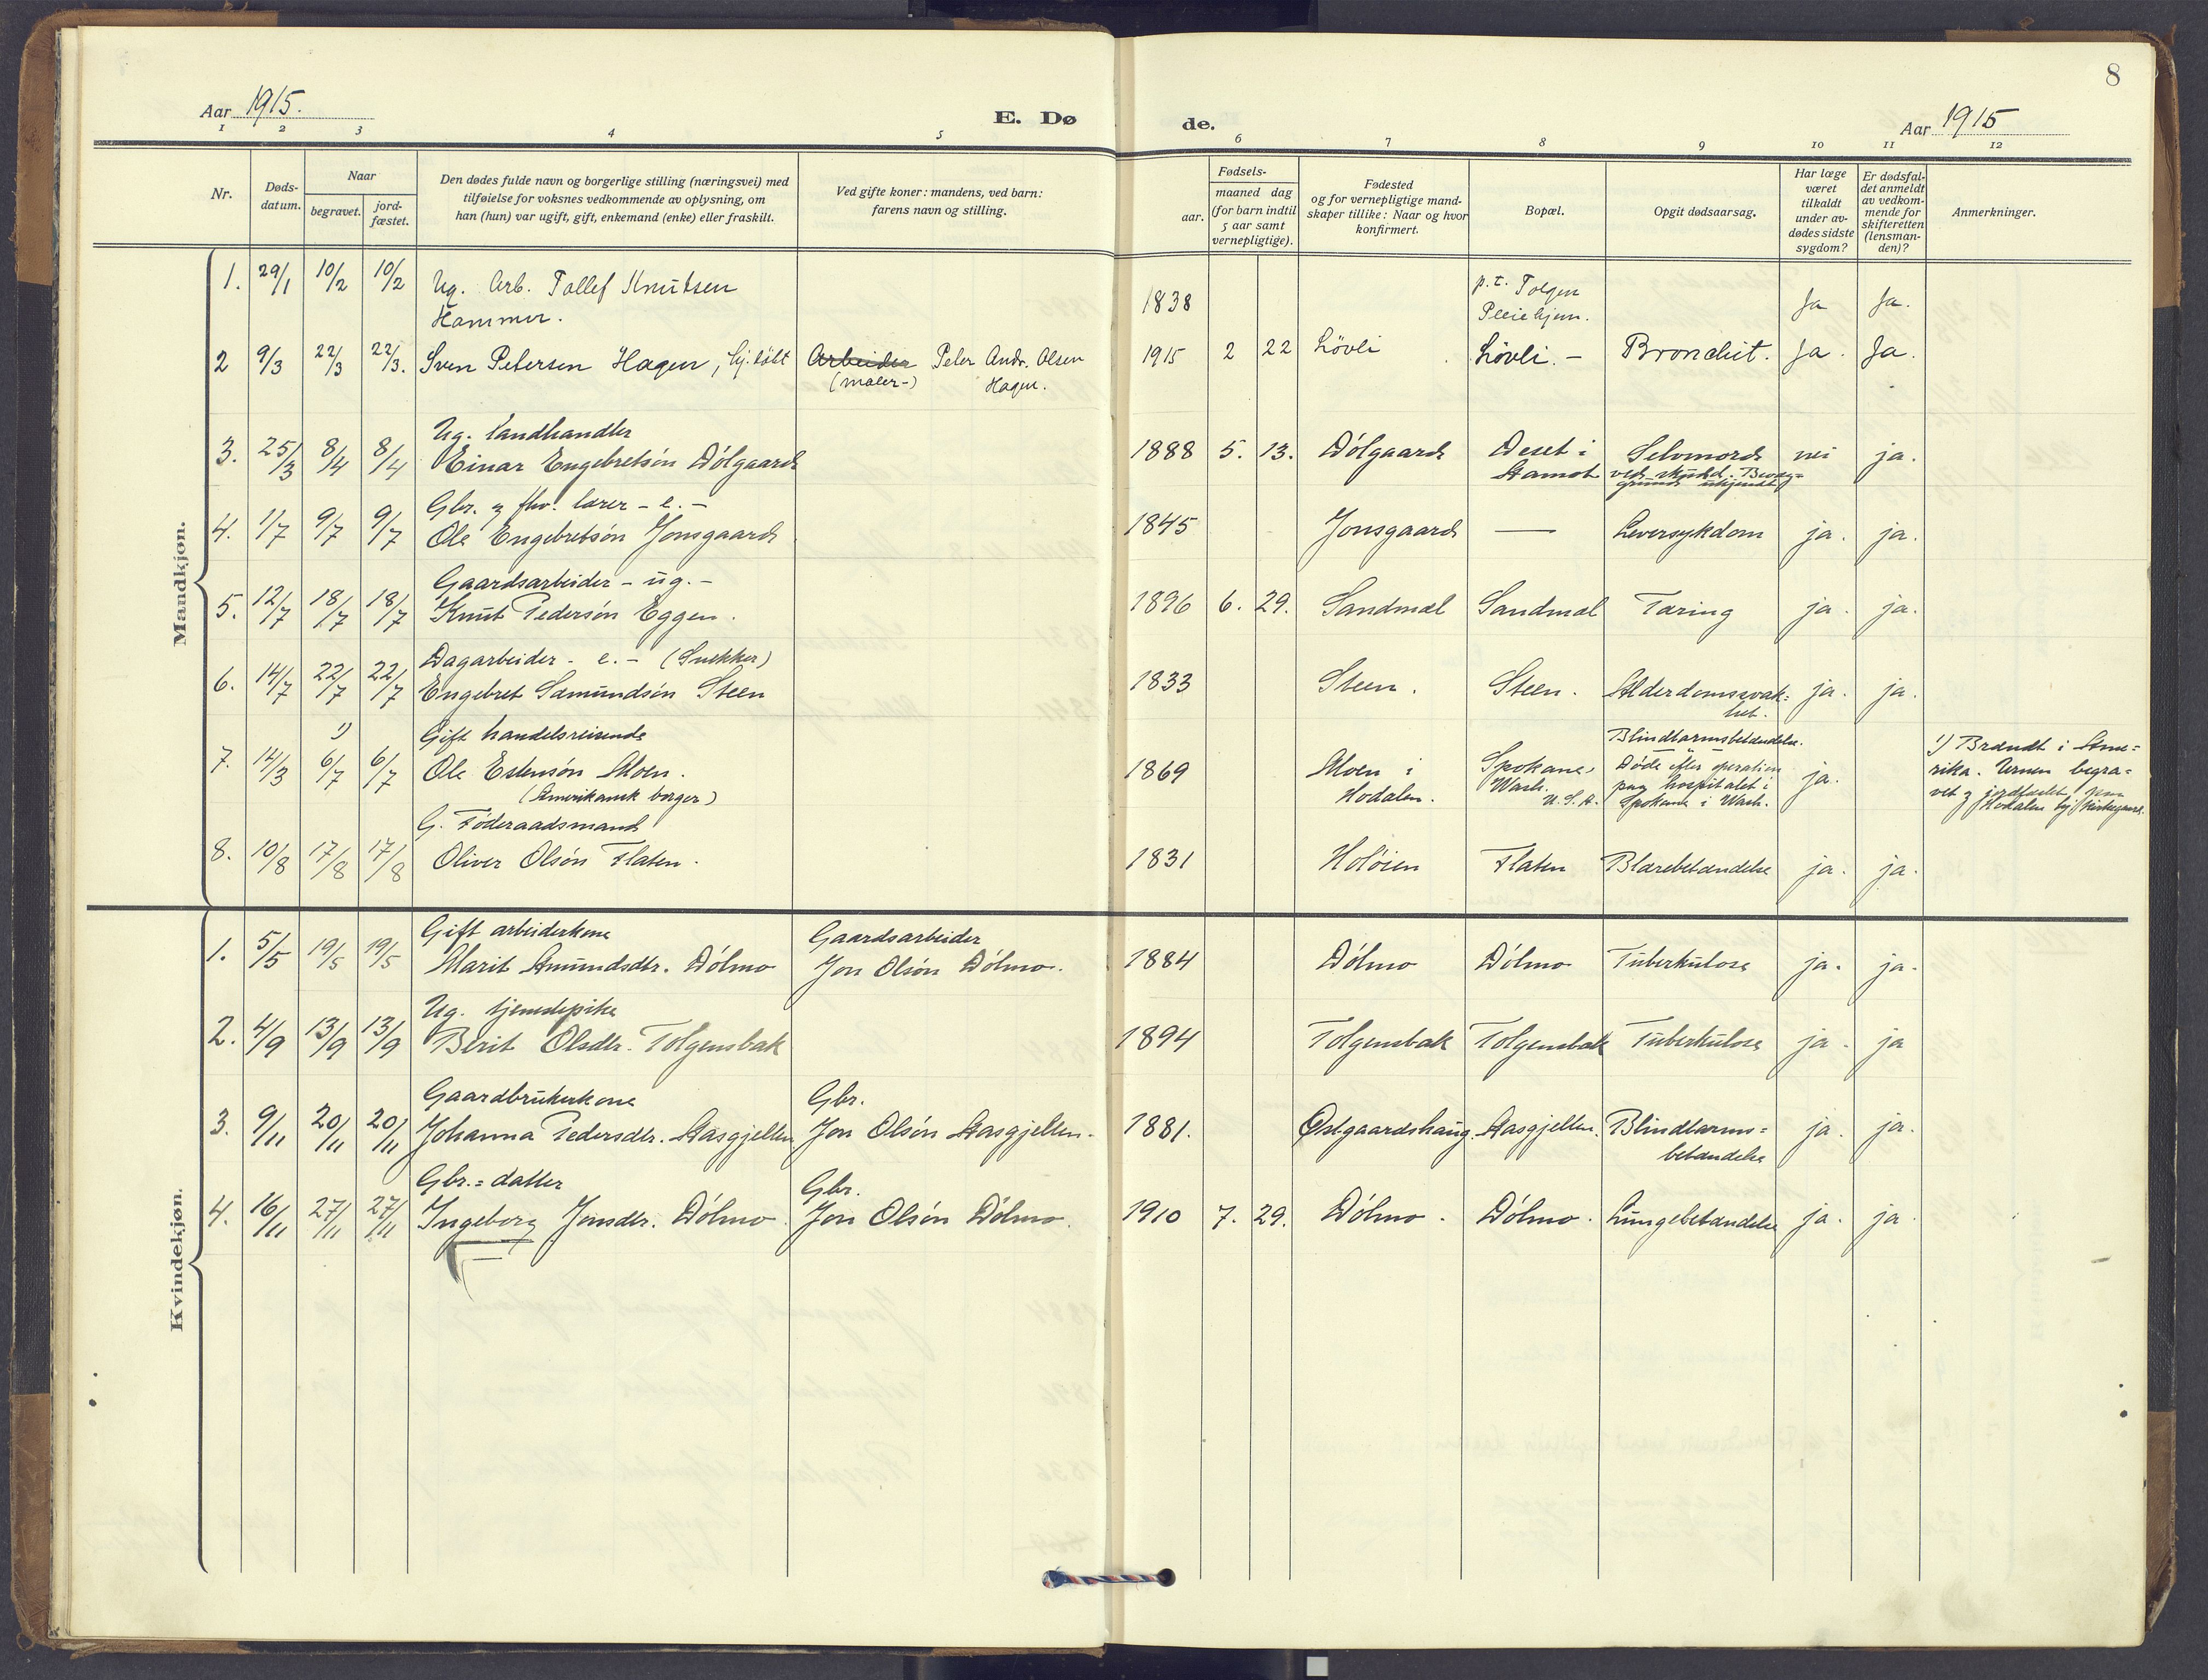 8
Aar 1915.
E. Dø
de.
Aar 1915
1 2 3 4 5 6 7 8 9 10 11 12
Nr.
Døds-
datum.
Naar
begravet.
jord-
fæstet.
Den dødes fulde navn og borgerlige stilling (næringsvei) med
tilføielse for voksnes vedkommende av oplysning, om
han (hun) var ugift, gift, enkemand (enke) eller fraskilt.
Ved gifte koner: mandens, ved barn:
farens navn og stilling.
Fødsels-
aar.
maaned dag
(for barn indtil
5 aar samt
vernepligtige).
Fødested
og for vernepligtige mand-
skaper tillike: Naar og hvor
konfirmert.
Bopæl.
Opgit dødsaarsag.
Har læge
været
tilkaldt
under av-
dødes sidste
sygdom?
Er dødsfal-
det anmeldt
av vedkom-
mende for
skifteretten
(lensman-
den)?
Anmerkninger.
Mandkjøn.
1. 29/1 10/2 10/2 Ug. Arb. Tollef Knutsen
Hammer.
1838
p.t. Tolgen
Pleiehjem.
Ja Ja.
2 9/3 22/3 22/3. Sven Petersen Hagen, hj.døbt
Arbeider Peter Andr. Olsen
(maler-) Hagen.
1915 2 22 Lövli Lövli. – Bronchit. Ja. Ja.
3. 25/3 8/4 8/4 Ug. Landhandler
Einar Engebretsön Dölgaard
1888 5. 13. Dölgaard Deset i
Aamot
Selvmord
ved skudd. Bevæg=
grund ukjendt
nei ja.
4. 1/7 9/7 9/7 Gbr. g fhv. lærer – e. –
Ole Engebretsön Jonsgaard
1845 Jonsgaard — Leversykdom ja. ja.
5. 12/7 18/7 18/7 Gaardsarbeider – ug. –
Knut Pedersön Eggen.
1896 6. 29. Sandmæl Sandmæl Tæring ja. ja.
6. 14/7 22/7 22/7 Dagarbeider – e. – (Snekker)
Engebret Samundsön Steen
1833 Steen. Steen. Alderdomssvak=
het.
ja. ja.
7. 14/3 1) 6/7 6/7 Gift handelsreisende
Ole Estensön Moen.
(Amerikansk borger)
1869 Moen i
Hodalen.
Spokane,
Wash.
U.S.A.
Blindtarmsbetændelse.
Döde efter operation
paa hospitalet i
Spokane i Wash.
ja.
1) Brændt i Ame=
rika. Urnen begra=
vet g jordfæstet paa
Hodalen kirkegaard.
8. 10/8 17/8 17/8 G. Föderaadsmand
Oliver Olsön Flaten.
1831 Holöien Flaten Blærebetændelse ja. ja.
Kvindekjøn.
1. 5/5 19/5 19/5 Gift arbeiderkone
Marit Amundsdtr. Dölmo
Gaardsarbeider
Jon Olsön Dölmo.
1884 Dölmo Dölmo Tuberkulose ja. ja.
2. 4/9 13/9 13/9 Ug. tjenestepike
Berit Olsdtr. Tolgensbak
1894 Tolgensbak Tolgensbak Tuberkulose ja. ja
3. 9/11 20/11 20/11 Gaardbrukerkone
Johanna Pedersdtr. Aasgjelten
Gbr.
Jon Olsön Aasgjelten.
1881. Østgaardshaug. Aasgjelten. Blindtarms=
betændelse
ja. ja.
4. 16/11 27/11 27/11 Gbr.= datter
Ingeborg Jonsdtr. Dölmo.
Gbr.
Jon Olsön Dölmo.
1910 7. 29. Dölmo. Dölmo. Lungebetændelse ja. ja